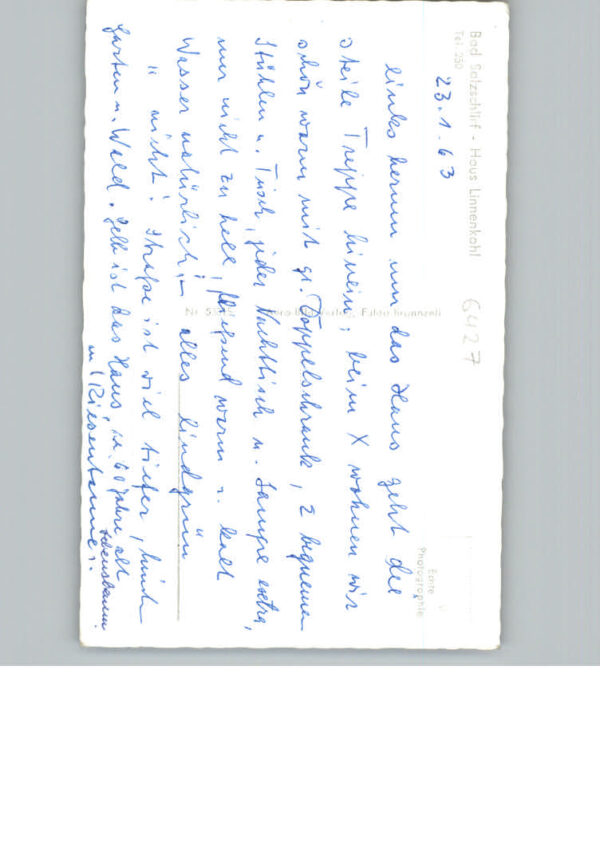 Bad Salzschlirf - Haus Linnenkohl
Tel. 250
6427
23.1.63
Echte
Photographie
links herum um das Haus geht die
steile Treppe hinein; beim X wohnen wir
schön warm mit gr. Doppelschrank, 2 bequemen
Stühlen u. Tisch, jeder Nachttisch u. Lampe extra,
nur nicht zu hell, fließend warm u. kalt
Wasser natürlich! - alles lindgrün
" nicht! Straße ist viel tiefer, hinten
Garten u. Wald. Gelb ist das Haus, ca. 60 Jahre alt
u. Riesentanne.
Lebensbaum